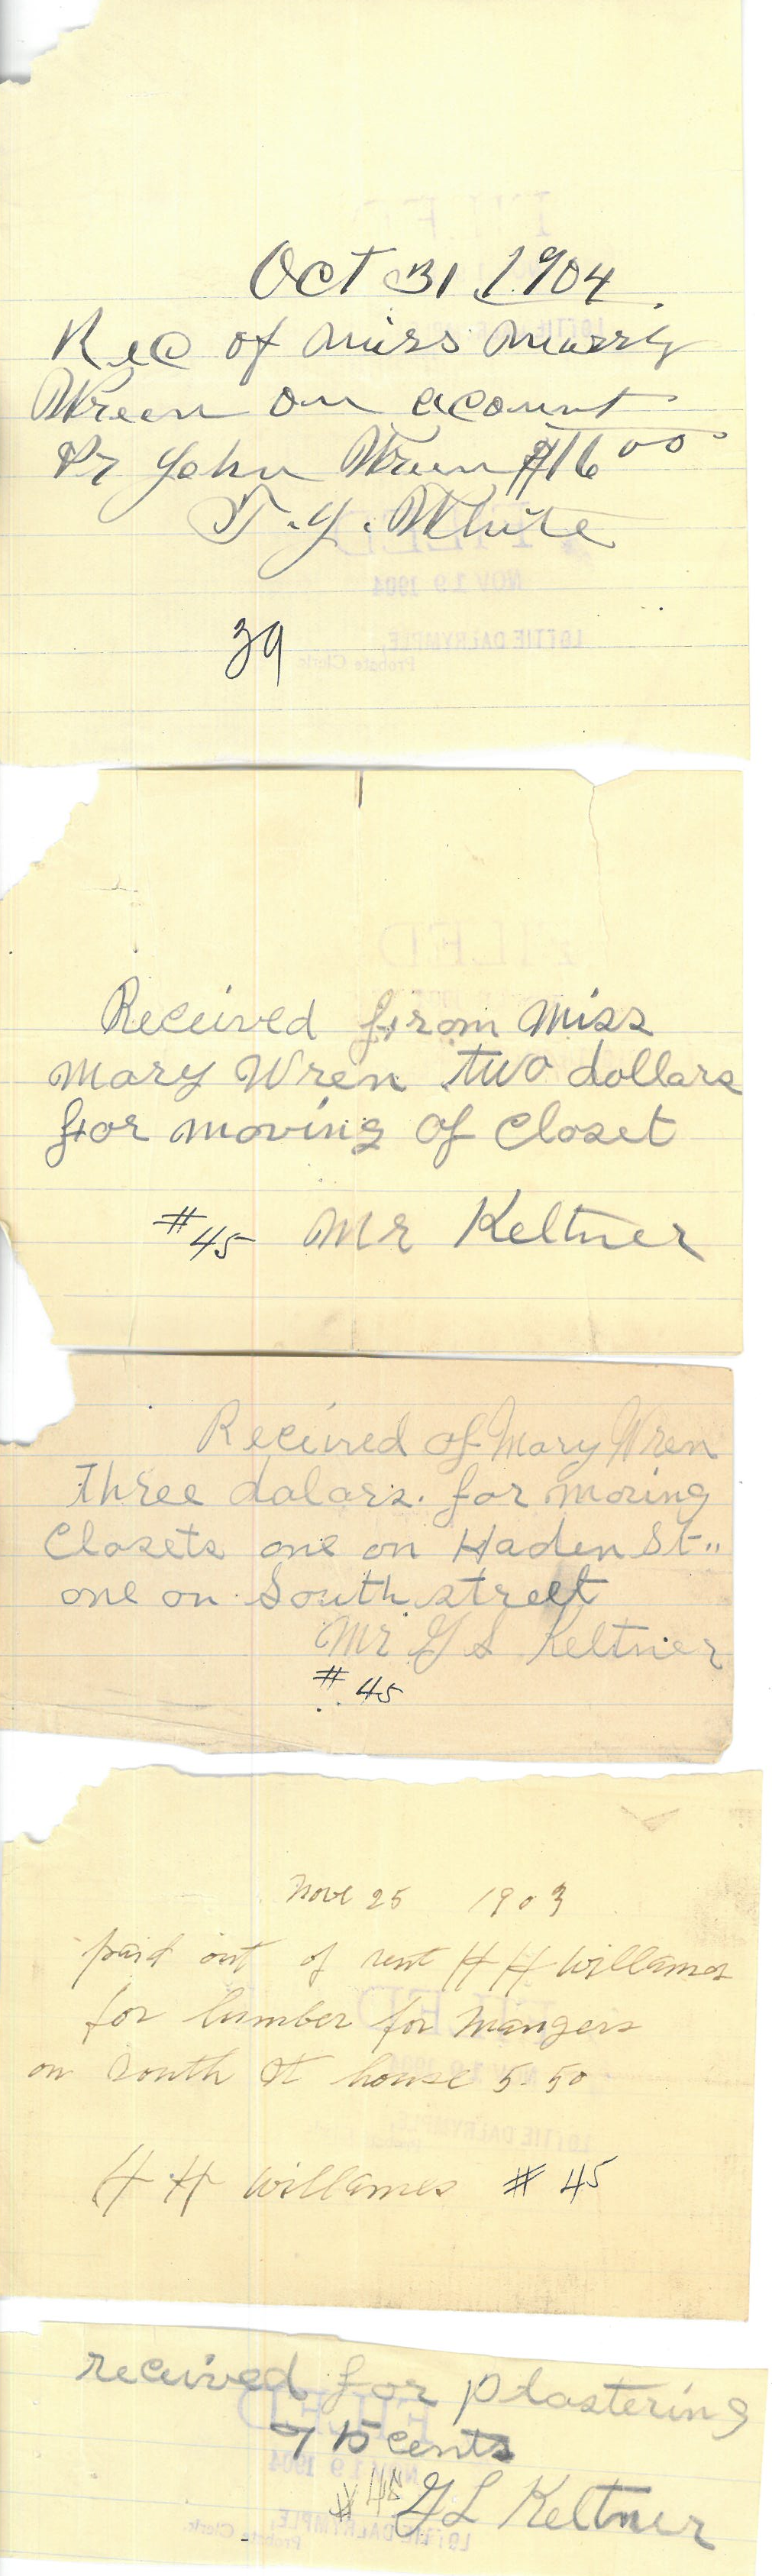 Oct 31 1904
Rec of Miss Marry
Wreen on acount
Pr John Wreen $16 00
T. Y. White
39
FILED
NOV 19 1904
LOTTIE DALRYMPLE,
Probate Clerk
FILED
Received from Miss
Mary Wren two dollars
for moving of Closet
#45 Mr Keltner
Received of Mary Wren
three dalars. for moving
Closets one on Haden St..
one on South street
Mr G S Keltner
#45
Nove 25 1903
paid out of rent H H Willames
for lumber for mangers
on South St house 5.50
FILED
LOTTIE DALRYMPLE,
H H Willames #45
received for plastering
75 cents
#45 G L Keltner
FILED
NOV 19 1904
LOTTIE DALRYMPLE,
Probate Clerk.